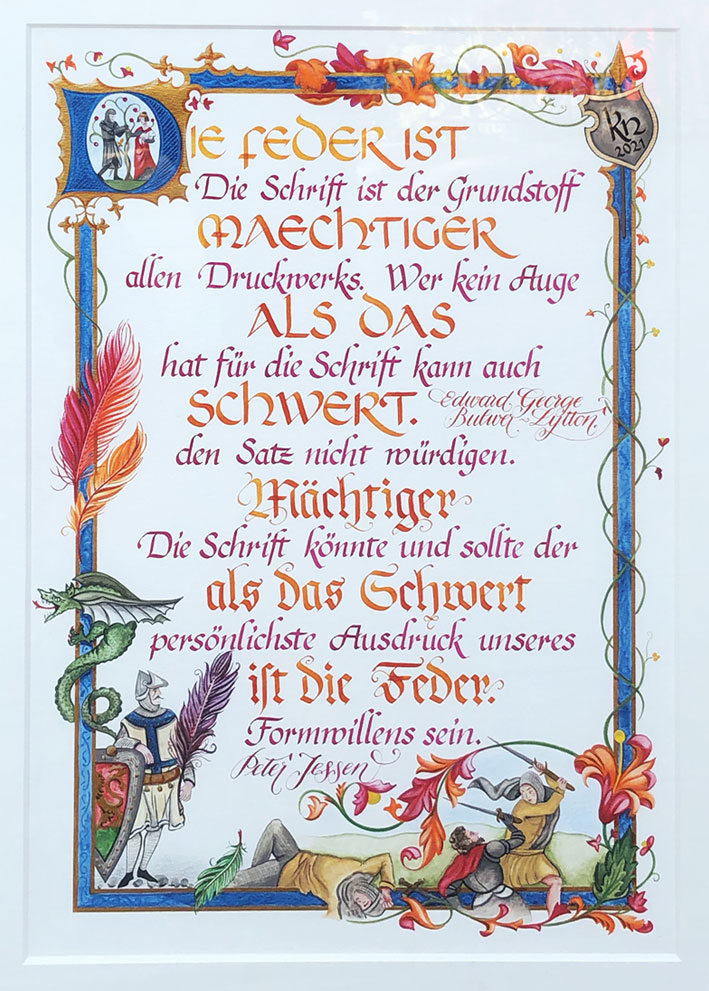 DIE FEDER IST
Kn
2021
Die Schrift ist der Grundstoff
MAECHTIGER
allen Druckwerks. Wer kein Auge
ALS DAS
hat für die Schrift kann auch
SCHWERT.
Edward George
Bulwer-Lytton
den Satz nicht würdigen.
Mächtiger
Die Schrift könnte und sollte der
als das Schwert
persönlichste Ausdruck unseres
ist die Feder.
Formwillens sein.
Peter Jessen